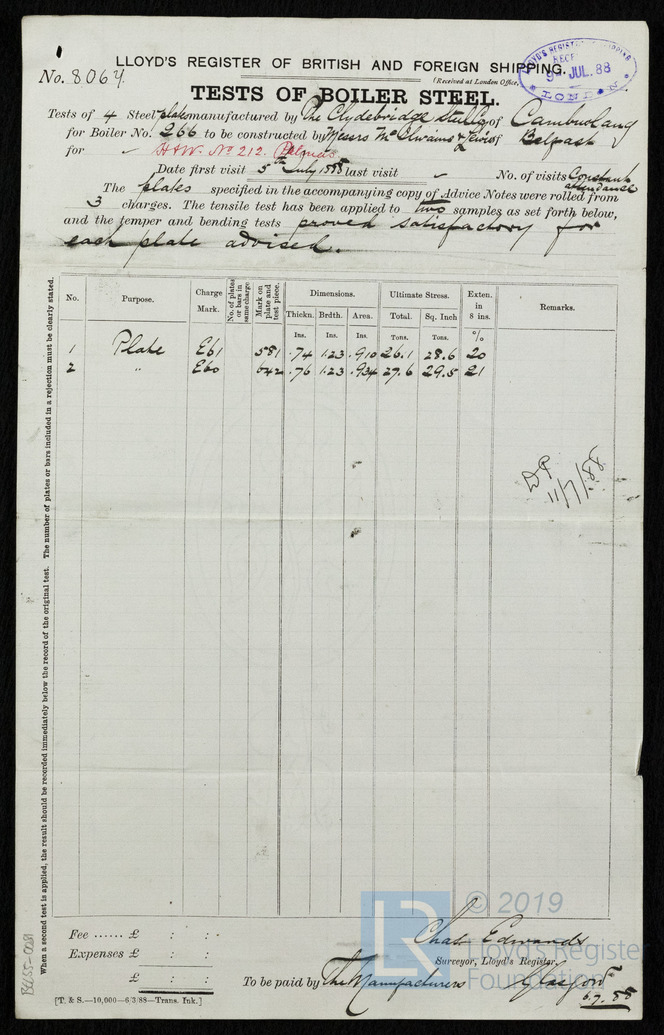 LLOYD'S REGISTER OF BRITISH AND FOREIGN SHIPPING.
No. 8064.
(Received at London Office,
LLOYD'S REGISTER SHIPPING
RECD
9 JUL. 88
LONDON
TESTS OF BOILER STEEL.
Tests of 4 Steel plates manufactured by The Clydebridge Steel Co of Cambuslang
for Boiler No. 266 to be constructed by Messrs McIlwaine & Lewis of Belfast
for H&W. No 212. Palmas
Date first visit 5th July 1888 last visit " No. of visits Constant attendance
The plates specified in the accompanying copy of Advice Notes were rolled from
3 charges. The tensile test has been applied to two samples as set forth below,
and the temper and bending tests proved satisfactory for
each plate advised.
When a second test is applied, the result should be recorded immediately below the record of the original test. The number of plates or bars included in a rejection must be clearly stated.
No. Purpose. Charge Mark. No. of plates or bars in same charge Mark on plate and test piece. Dimensions. Ultimate Stress. Exten. in 8 ins. Remarks.
Thickn. Brdth. Area. Total. Sq. Inch
Ins. Ins. Ins. Tons. Tons. %
1 Plate E61 581 .74 1.23 .910 26.1 28.6 20
2 " E60 642 .76 1.23 .934 27.6 29.5 21
DP
11/7/88
Fee ...... £ : :
Expenses £ : :
£ : :
To be paid by The Manufacturers
Chas Edwards
Surveyor, Lloyd's Register,
Glasgow
6.7.88
[T. & S.—10,000—6/3/88—Trans. Ink.]
LR
© 2019
Lloyd's Register
Foundation